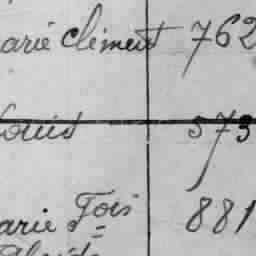 arie Clément 762
Louis 573
arie Fois 881